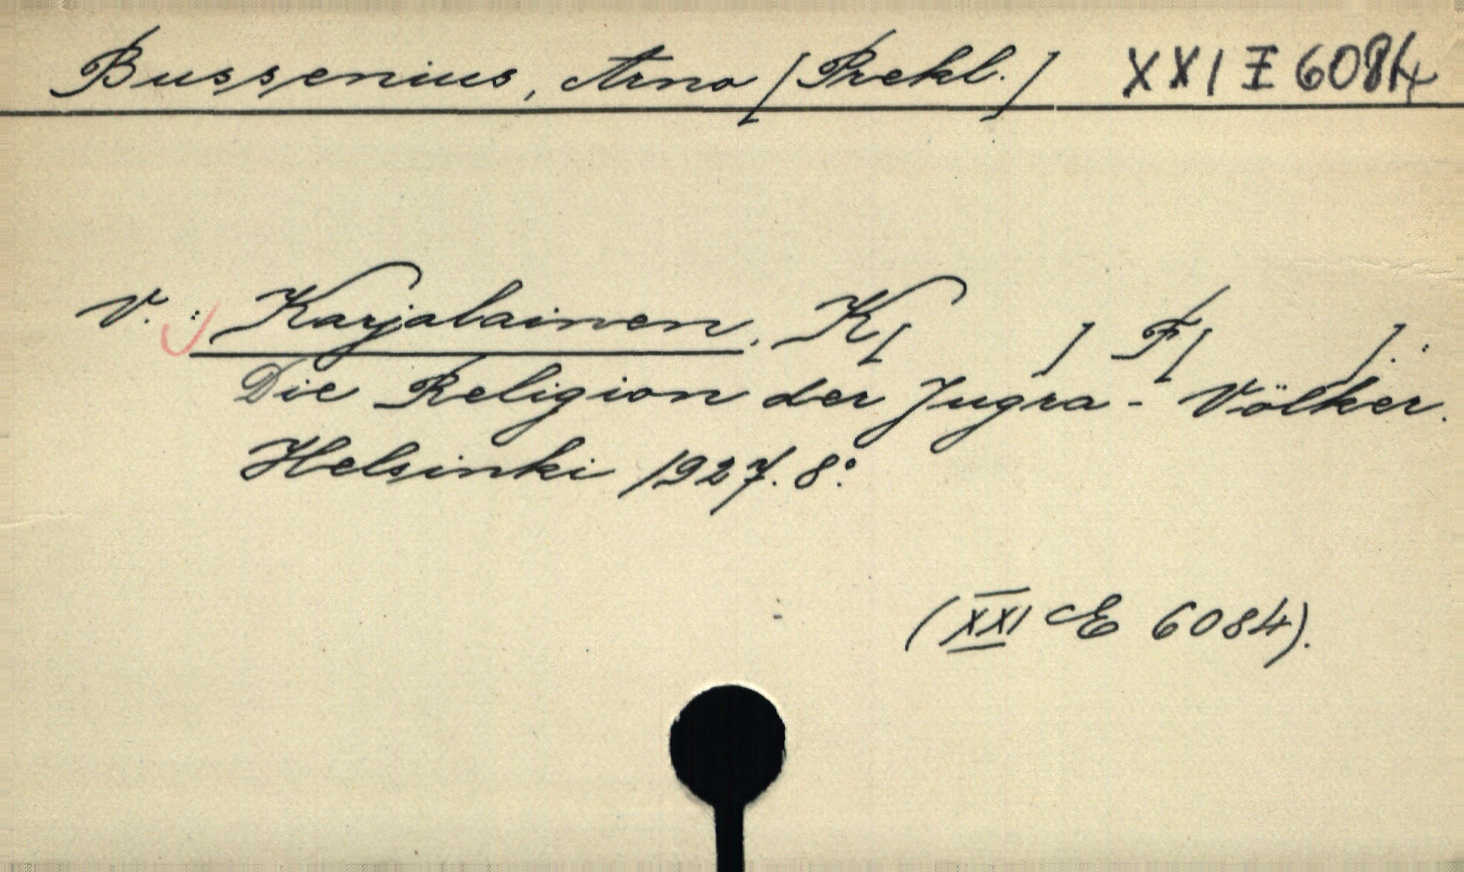 Bussenius, Arno [Prekl.] XXI E 6084
V.: Karjalainen, K[ ] F[ ].:
Die Religion der Jugra-Völker.
Helsinki 1927. 8°.
(XXI E 6084).